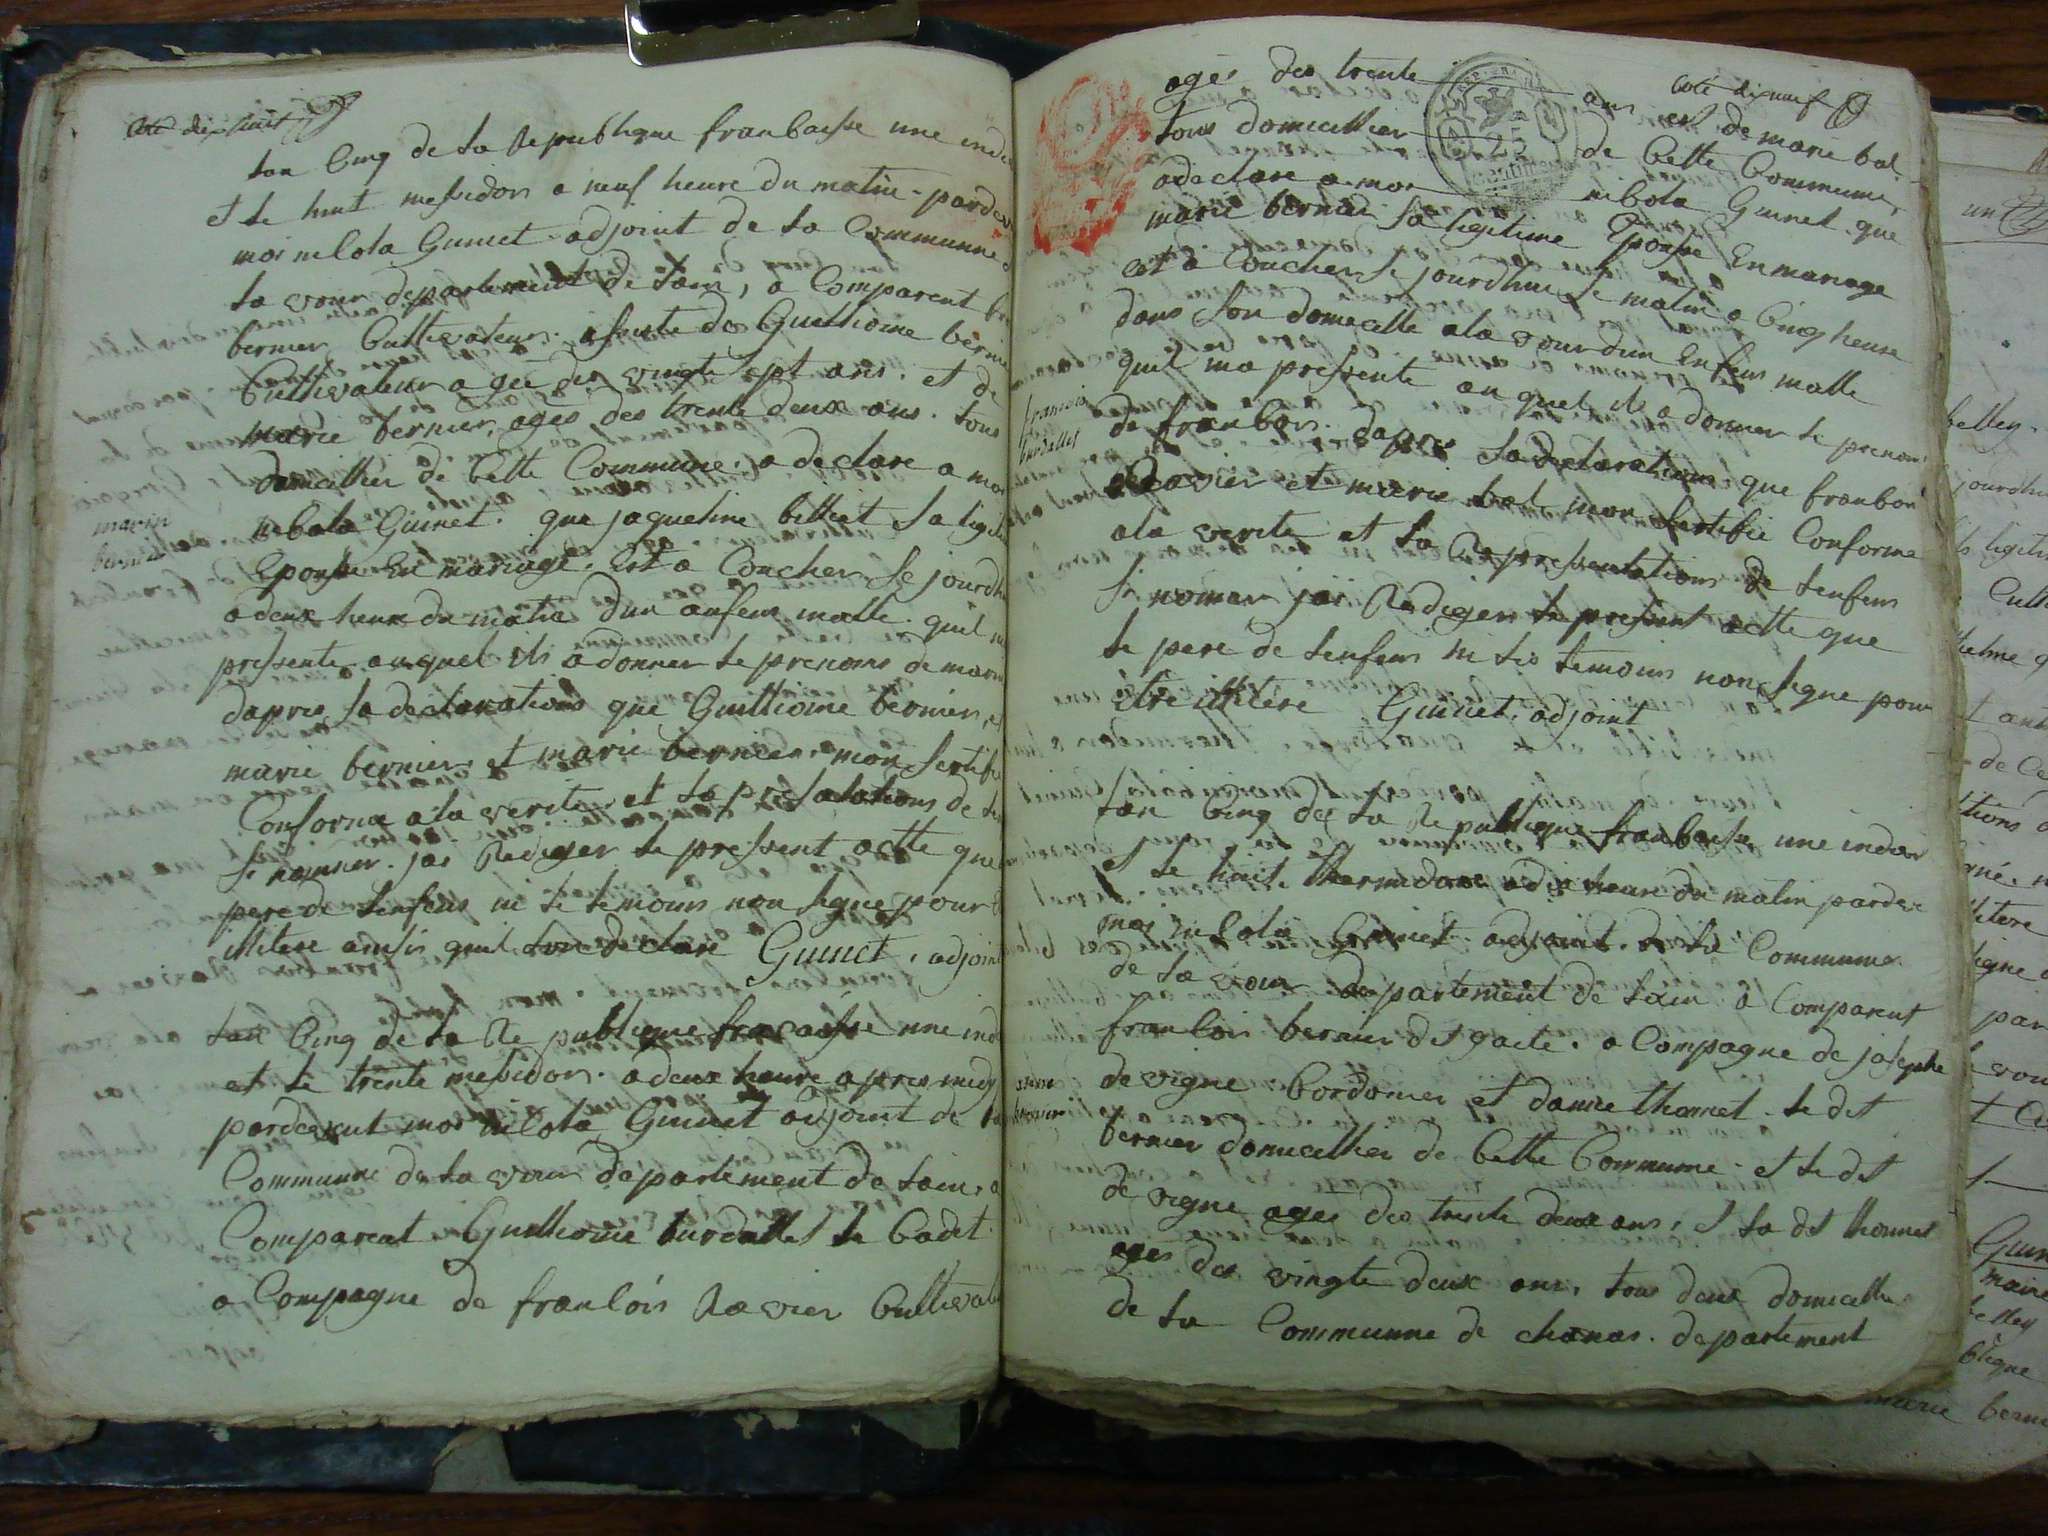 coté dix huit
lan cinq de la Republique franbaisse une indi
et le huit messidors a neuf heure du matin pardev
moi nicola Guinet adjoint de la Commune
la vour departement de lain, a Comparent
bernier Cultivateur assiste de Guilliome bernie
Cultivateur agée des vingte sept ans. et de
marie bernier, ages des trente deux ans. tous
domicillier de Cette Commune. a declare a moi
marin
bernier
nicola Guinet. que jaqueline billiet sa ligeti
Eponse En mariage. Est a Coucher se jourdh
a deux heure du matin dun anfens malle. quil m
pressente auquel ils a donner le prenoms de marin
dapres sa declarations que Guilliome bernier, et
marie bernier et marie bernier, mon sertifie
Conforme a la verite et la presatations de le
si nommer. jai Rediger le pressent actte que
pere de lenfens ni le temoins non signe pour
illitere ainsis quil lon declare Guinet, adjoint
lan Cinq de la Re publique francaisse une ind
et le trente messidors. a deux heure apres midy
pardevent moi nicola Guinet adjoint de la
Commune de la vour departement de lain, a
Comparent Guilliome burdallet le Cadet
a Compagne de franlois Ravier Cultivate
coté dix neuf
ages des trente ans et de marie bal
tous domicillier de Cette Commune,
a declare a moi nicola Guinet. que
marie bernier sa ligitime Eponse En mariage
est a Coucher se jourdhui le matin a Cinq heure
dans son domicille a la vour dun Enfens malle
quil ma pressente au quel ils a donner le prenom
francois
burdallet
de franbois. dapres sa declarations que franbois
Ravier et marie bal mon sertifie Conforme
a la verite et la Repressentations de lenfens
si nomer jai Rediger le pressent actte que
le pere de lenfens ni les temoins non signe pour
être illitére Guinet. adjoint
lan Cinq de la Re publique franbaisse une indiv
et le huit thermidore a dix heure du matin pardev
moi nicola Guinet adjoint de la Commune
de la vour departement de lain a Comparent
franlois bernier dit gaete. a Compagne de josephe
de vigne Cordonier et danne thomet. le dit
bernier domicillier de Cette Commune. et le dit
de vigne ages des trente deux ans, et la dit thomet
ages des vingte deux ans, tous deux domicillier
de la Commune de chanas. departement